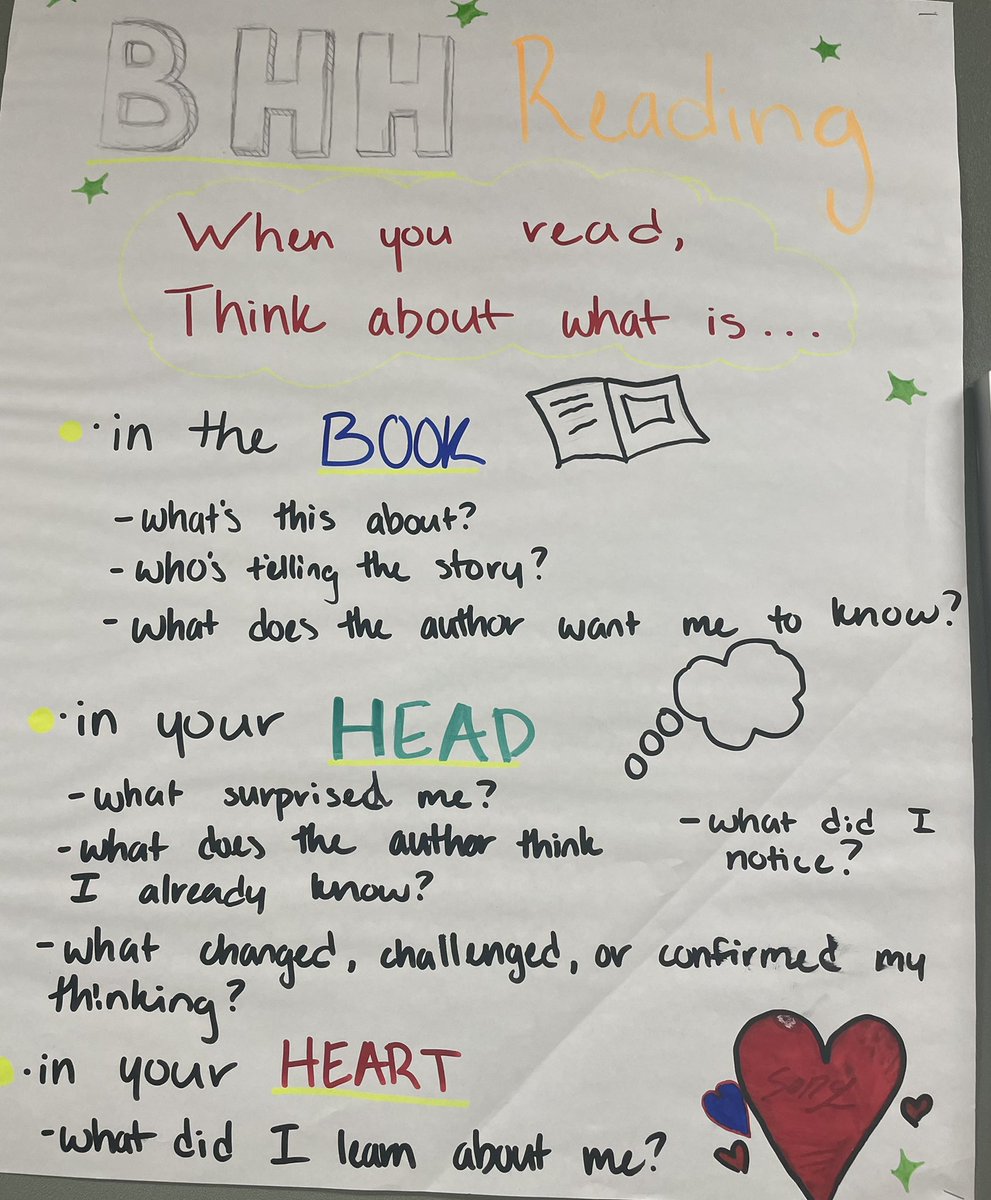 BHH Reading
When you read,
Think about what is...
• in the BOOK
- what's this about?
- who's telling the story?
- what does the author want me to know?
• in your HEAD
- what surprised me?
- what does the author think
I already know?
- what did I
notice?
- what changed, challenged, or confirmed my
thinking?
• in your HEART
- what did I learn about me?